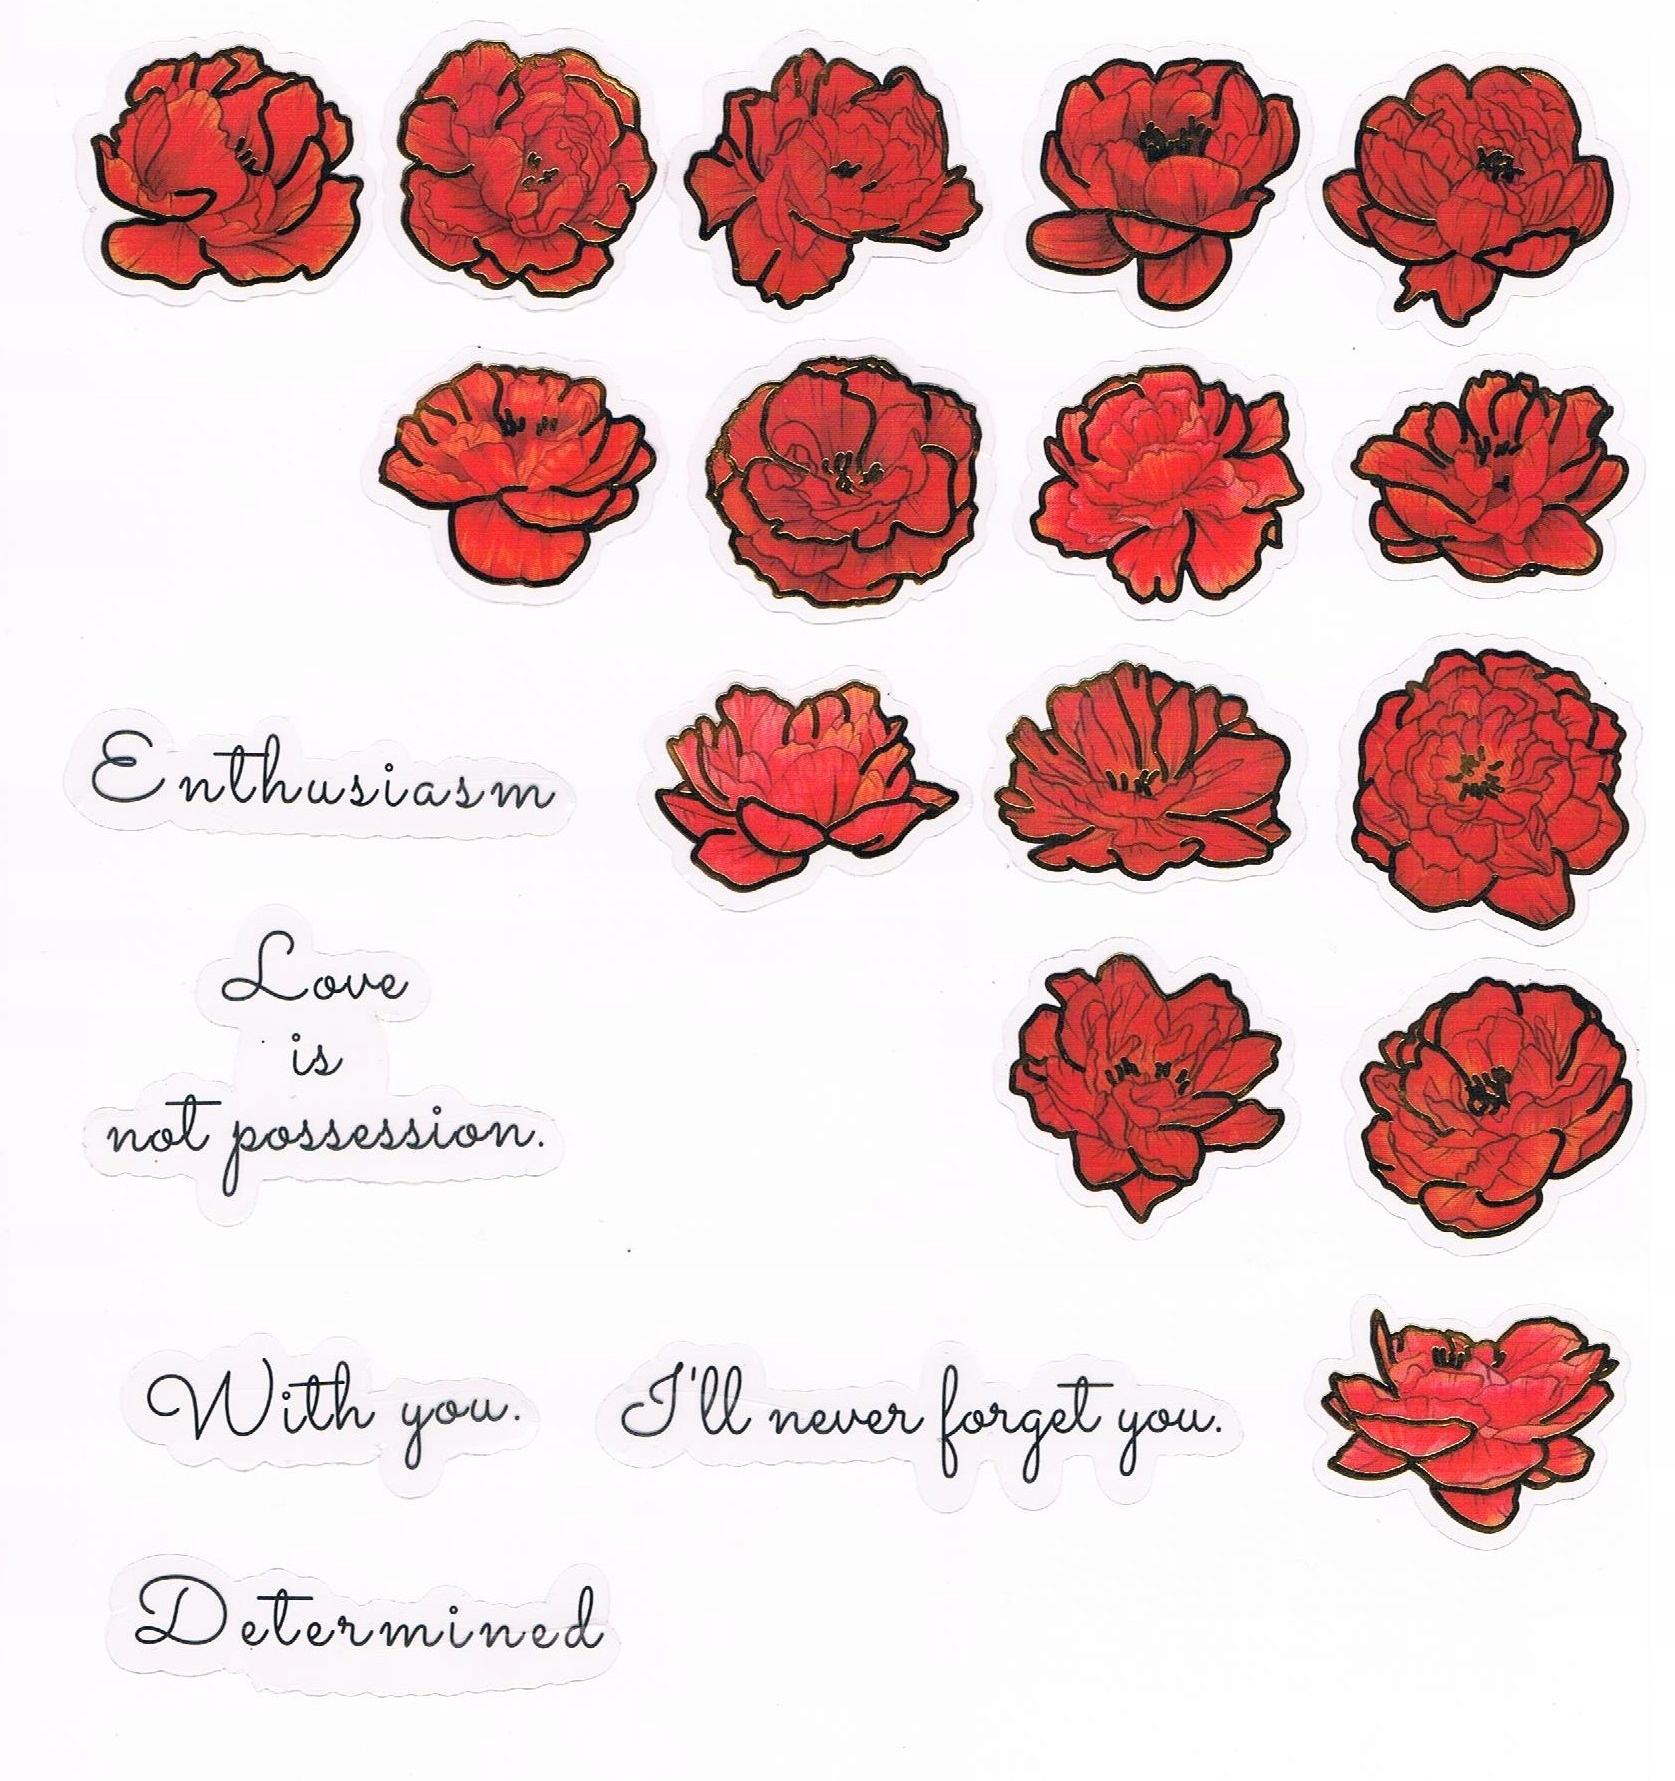 Enthusiasm
Love
is
not possession.
With you.
I'll never forget you.
Determined